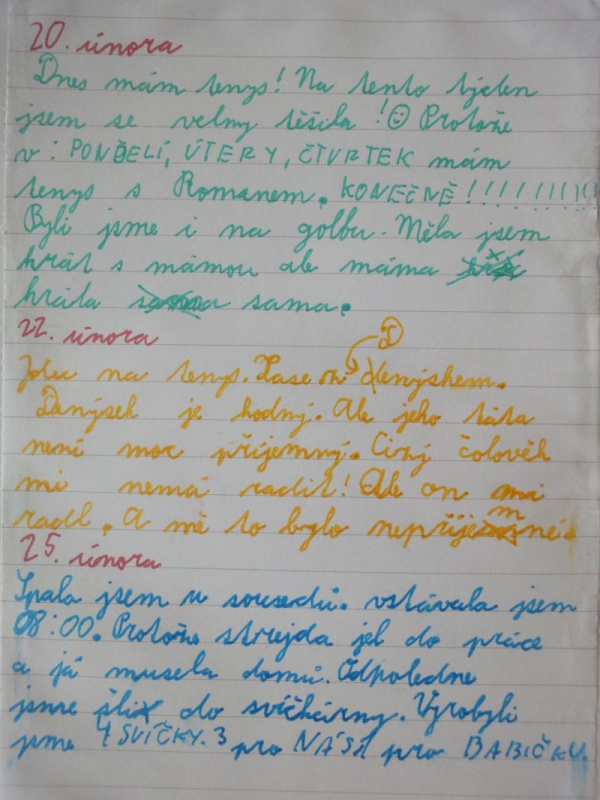 20. února
Dnes mám tenys! Na tento týden
jsem se velmy těšila !☺ Protože
v: PONDĚLÍ, ÚTERY, ČTVRTEK mám
tenys s Romanem. KONEČNĚ!!!!!!!!!!
Byli jsme i na golbu. Měla jsem
hrát s mámou ale máma
hrála sama.
22. února
D
Jdu na tenys. Zase denýskem.
Denýsek je hodný. Ale jeho táta
není moc příjemný. Cizý čolověk
mi nemá radit! Ale on mi
radl. A mě to bylo nepříjemné.
25. února
Spala jsem u sousedů. vstávala jsem
08:00. Protože strejda jel do práce
a já musela domů. Odpoledne
jsme šli do svíčkárny. Vyrobyli
jsme 4 SVÍČKY. 3 pro NÁS 1 pro BABIČKU.